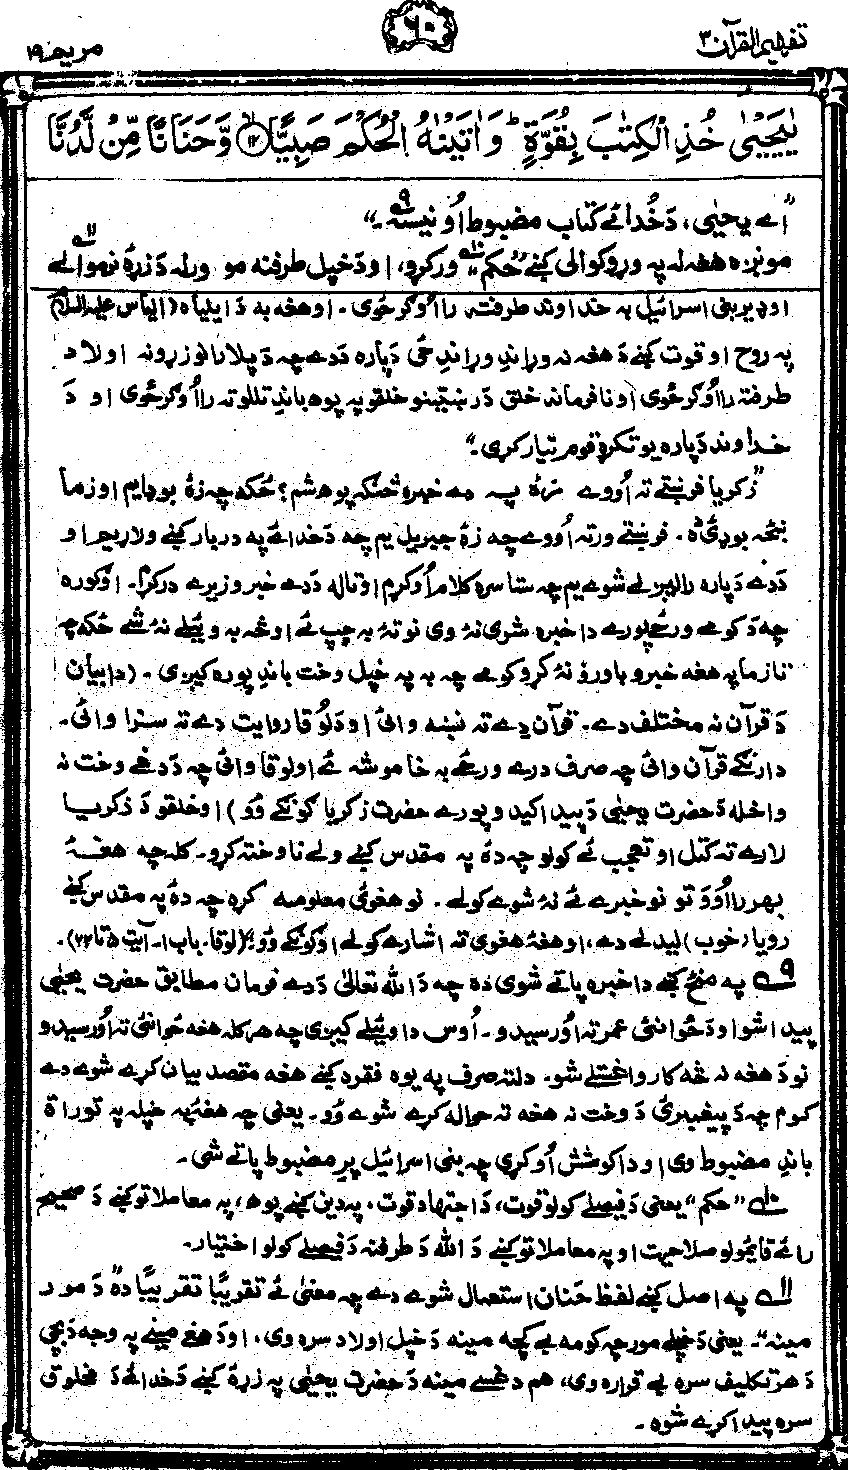 تفهیم القرآن ۳۰
۶۰
مریم ۱۹
یٰیَحْیٰی خُذِ الْکِتٰبَ بِقُوَّۃٍ ؕ وَ اٰتَیْنٰہُ الْحُکْمَ صَبِیًّا ﴿۱۲﴾ وَّ حَنَانًا مِّنْ لَّدُنَّا
"اے یحییٰ، دَ خُدائے کتاب مضبوط اُونیسه۔"۹
مونږه هغه له په وړوکوالی کښے "حُکم"۱۰ ورکړو، او دَ خپل طرفنه مو ورله دَ زړهٔ نرموالے۱۱
او ډیر بنی اسرائیل به خداوند طرفته رااُوګرځوی۔ او هغه به دَ ایلیاه (الیاس علیہ السلام)
په روح او قوت کښے دَ هغه نه وړاندِ وړاندِ ځی دَپاره دَدے چه دَ پلارانو زړونه اولاد
طرفته رااُوګرځوی او نافرماند خلق دَ رښتینو خلقو په پوهه باندِ تللو ته رااُوګرځوی او دَ
خداوند دَپاره یو تکړه قوم تیار کړی۔"
"زکریا فرښتے ته اُووے زهٔ په دے خبره څنګه پوهه شم؟ ځکه چه زهٔ بوډا یم او زما
ښځه بوډئ ده۔ فرښتے ورته اُووے چه زهٔ جبریل یم چه دَ خدائے په دربار کښے ولاړ یم او
دَدے دَپاره رالیږلے شوے یم چه ستا سره کلام اُوکړم او تا له دَدے خبر و زیرے درکړم۔ اوګوره
چه دَ کومے ورځے پورے دا خبره شوی نهٔ وی نو تهٔ به چپ ئے او څه به وئیلے نهٔ شے ځکه چه
تا زما په هغه خبرو باور و نهٔ کړو کومے چه به په خپل وخت باندِ پوره کیږی۔ (دا بیان
دَ قرآن نه مختلف دے۔ قرآن دے ته نښه وائی او دَ لُوقا روایت دے ته سزا وائی۔
دارنګے قرآن وائی چه صرف درے ورځے به خاموشه ئے او لوقا وائی چه دَ دغے وخت نه
واخله دَ حضرت یحییٰ دَ پیدا کیدو پورے حضرت زکریا ګونګے وُو) او خلقو دَ زکریا
لارے ته کتل او تعجب ئے کولو چه دهٔ په مقدس کښے ولے ناوخته کړو۔ کله چه هغهٔ
بهر رااُووَتو نو خبرے ئے نهٔ شوے کولے۔ نو هغوئ معلومه کړه چه دهٔ په مقدس کښے
رویا (خوب) لیدلے دے، او هغهٔ هغوی ته اشارے کولے او ګونګے وُو"۔ (لوقا۔ باب ۱۔ آیت ۵ تا ۲۲)۔
۹ په منځ کښے دا خبره پاتے شوی ده چه دَ الله تعالیٰ دَدے فرمان مطابق حضرت یحییٰ
پیدا شو او دَ ځوانئی عمر ته اُورسیدو۔ اُوس دا وئیلے کیږی چه هر کله هغه ځوانئی ته اُورسیدو
نو دَ هغه نه څه کار واغستلے شو۔ دلته صرف په یوه فقره کښے هغه مقصد بیان کړے شوے دے
کوم چه دَ پیغمبرئ دَ وخت نه هغه ته حواله کړے شوے وُو۔ یعنی چه هغهٔ په خپله په توراة
باندِ مضبوط وی او دا کوشش اُوکړی چه بنی اسرائیل پرِ مضبوط پاتے شی۔
۱۰ "حکم" یعنی دَ فیصلے کولو قوت، دَ اجتهاد قوت، په دین کښے پوهه، په معاملاتو کښے دَ صحیح
رائے قایمولو صلاحیت او په معاملاتو کښے دَ الله دَ طرفنه دَ فیصلے کولو اختیار۔
۱۱ په اصل کښے لفظ حَنان استعمال شوے دے چه معنیٰ ئے تقریبًا تقریبًا ده "دَ مور
مینه"۔ یعنی دَ خپلے مور چه کومه بے کچه مینه دَ خپل اولاد سره وی، او دَ هغے مینے په وجه دَ بچی
دَ هر تکلیف سره بے قراره وی، هم دغسے مینه دَ حضرت یحییٰ په زړهٔ کښے دَ خدائے دَ مخلوق
سره پیدا کړے شوه۔